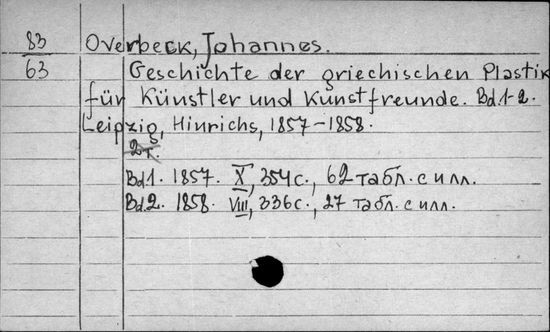 83 Overbeck, Johannes.
63 Geschichte der griechischen Plastik
für Künstler und Kunstfreunde. Bd.1-2.
Leipzig, Hinrichs, 1857-1858.
2т.
Bd.1. 1857. X, 354с., 62 табл. с илл.
Bd.2. 1858. VIII, 336с., 27 табл. с илл.